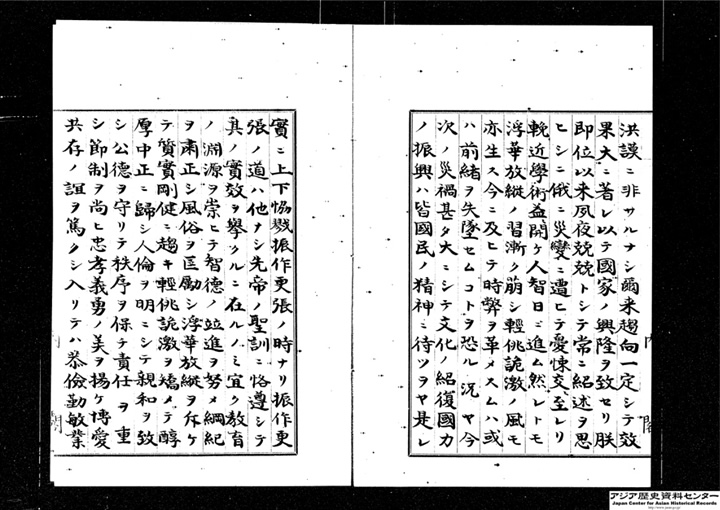 洪謨ニ非サルナシ爾来趨向一定シテ效
果大ニ著レ以テ國家ノ興隆ヲ致セリ朕
即位以来夙夜兢兢トシテ常ニ紹述ヲ思
ヒシニ俄ニ災變ニ遭ヒテ憂悚交至レリ
輓近學術益開ケ人智日ニ進ム然レトモ
浮華放縱ノ習漸ク萠シ輕佻詭激ノ風モ
亦生ス今ニ及ヒテ時弊ヲ革メスムハ或
ハ前緒ヲ失墜セムコトヲ恐ル況ヤ今
次ノ災禍甚タ大ニシテ文化ノ紹復國力
ノ振興ハ皆國民ノ精神ニ待ツヲヤ是レ
内
閣
實ニ上下協戮振作更張ノ時ナリ振作更
張ノ道ハ他ナシ先帝ノ聖訓ニ恪遵シテ
其ノ實效ヲ擧クルニ在ルノミ宜ク教育
ノ淵源ヲ崇ヒテ智德ノ竝進ヲ努メ綱紀
ヲ肅正シ風俗ヲ匡勵シ浮華放縱ヲ斥ケ
テ質實剛健ニ趨キ輕佻詭激ヲ矯メテ醇
厚中正ニ歸シ人倫ヲ明ニシテ親和ヲ致
シ公德ヲ守リテ秩序ヲ保チ責任ヲ重
シ節制ヲ尚ヒ忠孝義勇ノ美ヲ揚ケ博愛
共存ノ誼ヲ篤クシ入リテハ恭儉勤敏業
内
閣
アジア歴史資料センター
Japan Center for Asian Historical Records
http://www.jacar.go.jp/